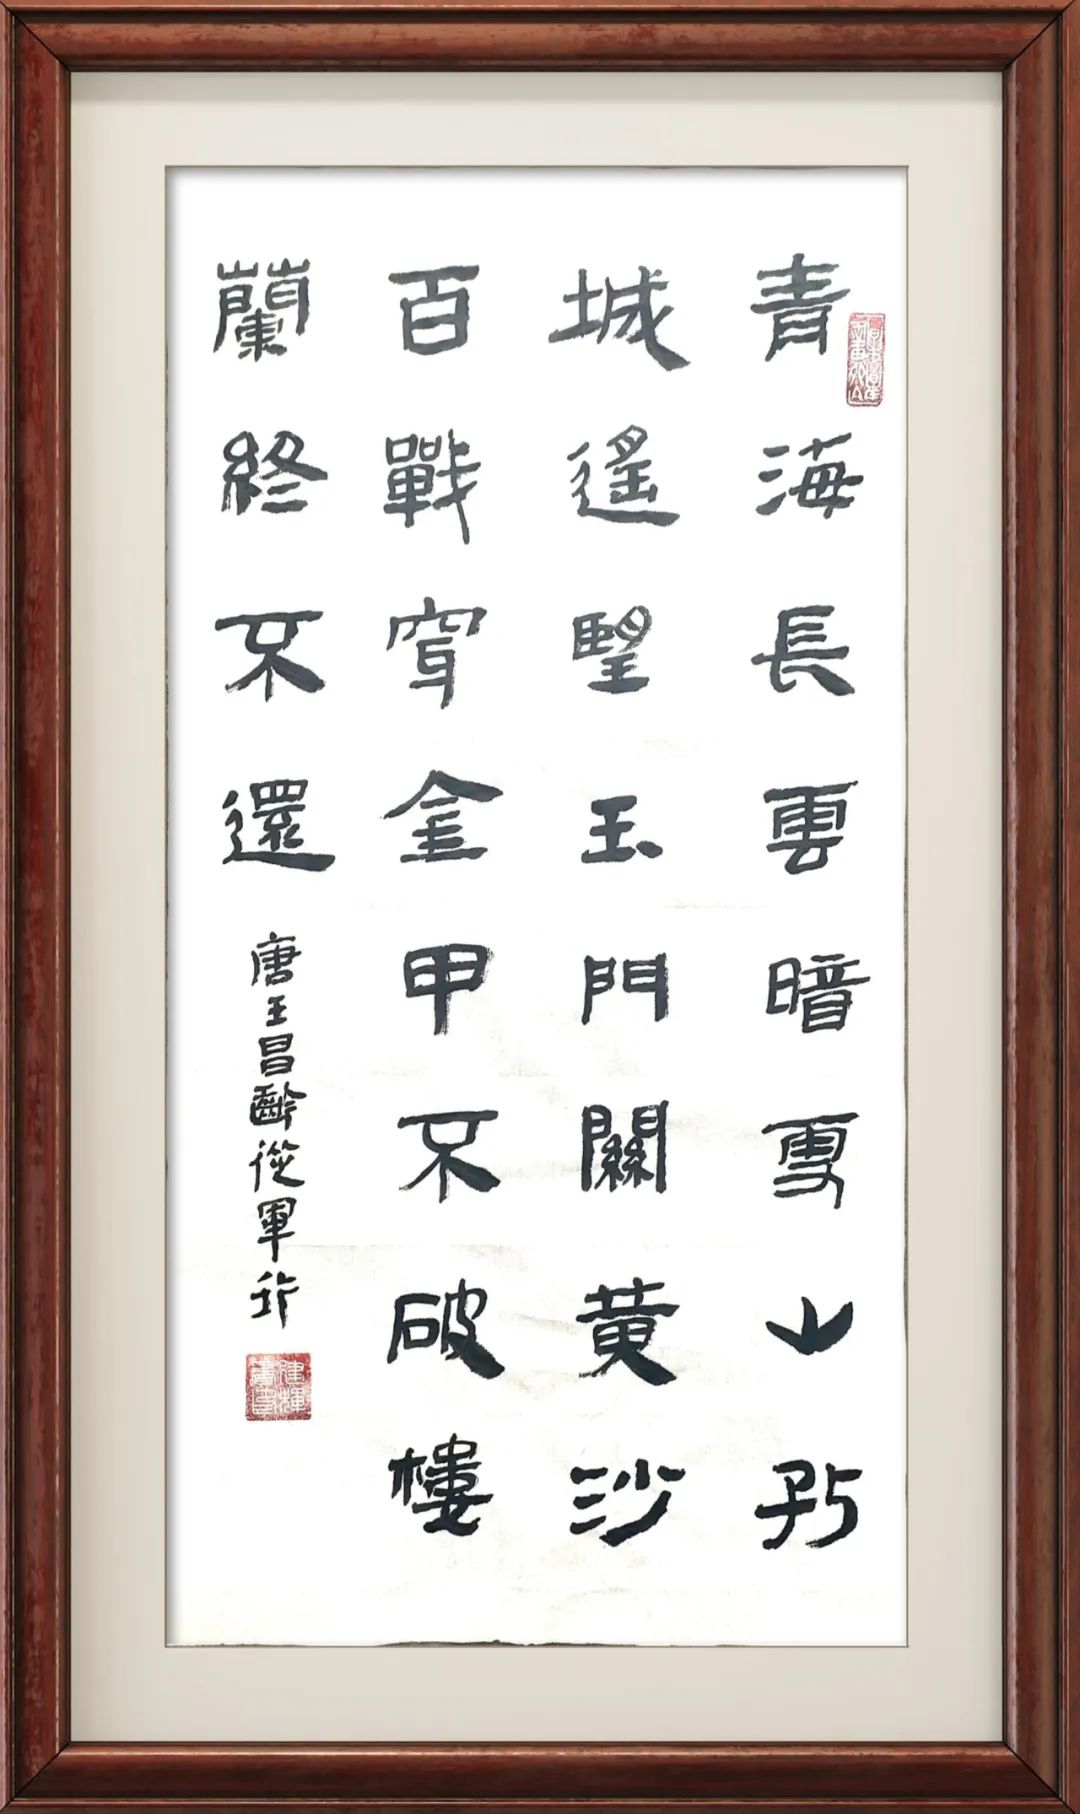 青海長雲暗雪山孤
城遙望玉門關黃沙
百戰穿金甲不破樓
蘭終不還
唐王昌齡從軍行
建輝書印